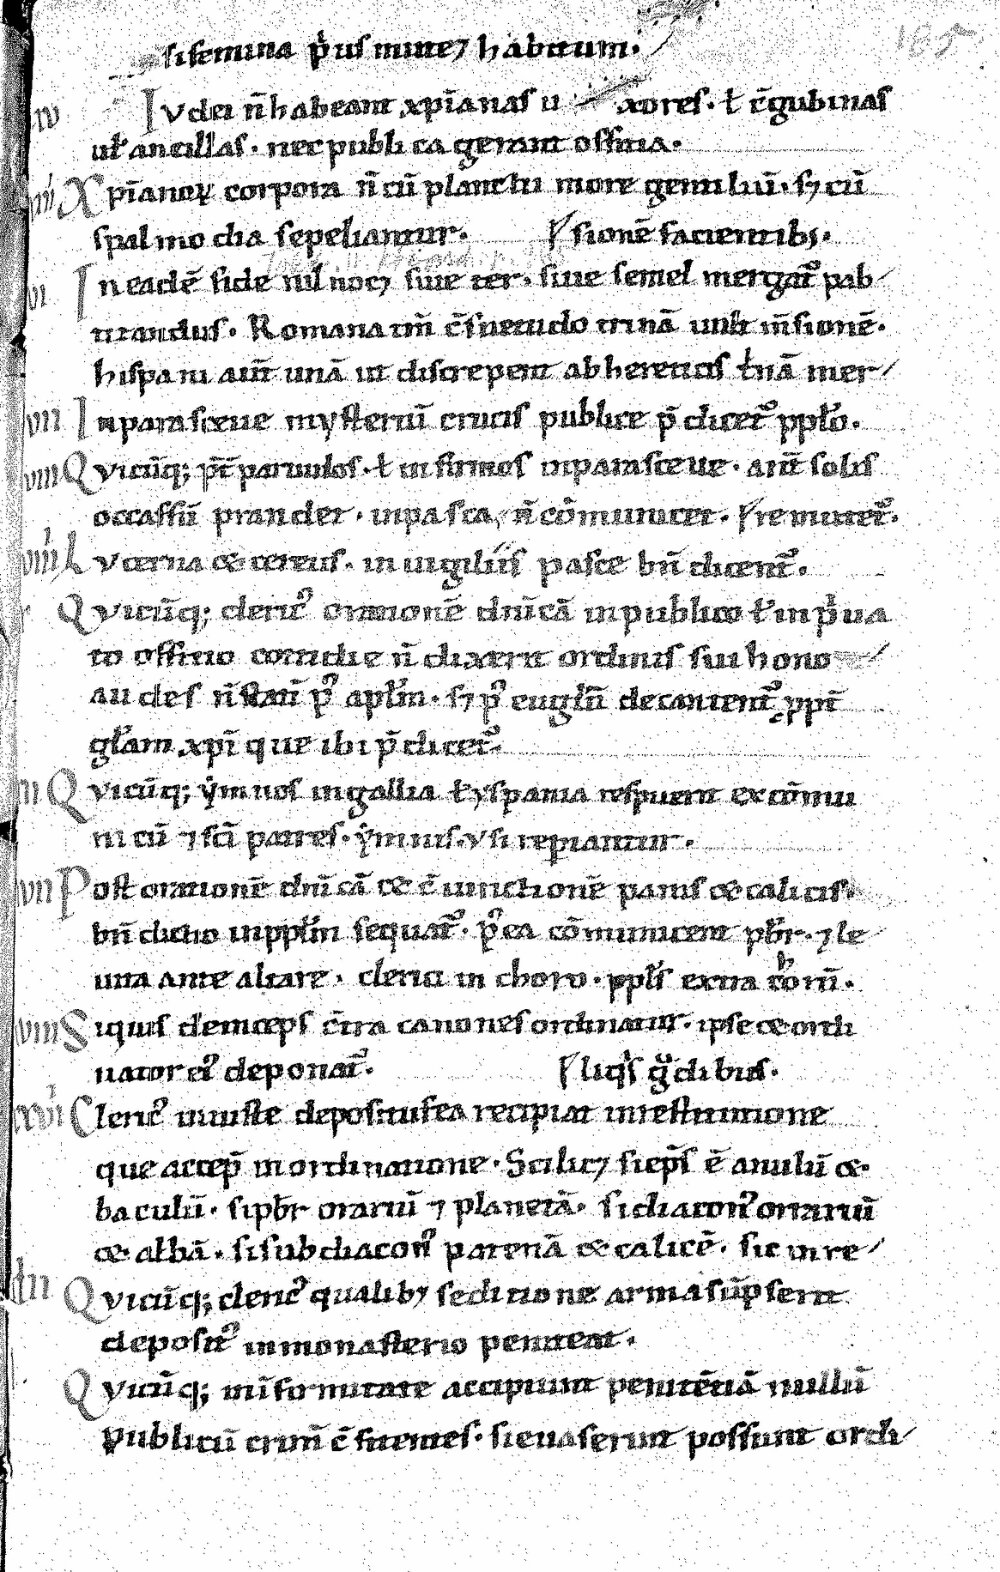 si femina p̄us mutet habitum.
Iudei n̄ habeant xp̄ianas uxores. ł c̄gubinas
uł ancillas. nec publica gerant officia.
Xp̄ianoꝝ corpora n̄ cū planctu more gentiliū. sꝫ cū
spalmodia sepeliantur. sionē facientibꝫ.
In eadē fide nil nocꝫ siue ter. siue semel mergat᷑ bab
tizandus. Romana tam̄ c̄suetudo trinā mersionē.
hispani aut̄ unā ut discrepent ab hereticis t̄nā mer
In parasceue mysteriū crucis publice p̄dicet᷑ pplo.
Quicūqꝫ p̄t paruulos. ł infirmos in parasceue. ante solis
occassū prandet. in pasca n̄ cōmunicet. remittet᷑.
Lucerna & cereus. in uigiliis pasce bn̄dicent᷑.
Quicūqꝫ cleric᷒ orationē dn̄icā in publico ł in p̄ua
to officio cotidie n̄ dixerit ordinis sui hono
Laudes n̄ statī p᷒ apłm. sꝫ p᷒ euglm̄ decantent᷑ ppt̄
głam xp̄i que ibi p̄dicet᷑.
Quicūqꝫ ẏmnos in gallia ł yspania respuerit excōmu
nicū ⁊ sc̄i patres. ẏmnis usi repiantur.
Post orationē dn̄icā & c̄iunctionē panis & calicis.
bn̄dictio in ppłm sequat᷑. p᷒ea cōmunicent pbr̄. ⁊ le
uita ante altare. clerici in choro. ppłs extra chorū.
Siquis deinceps c̄tra canones ordinatur. ipse & ordi
nator ei᷒ deponat᷑. liqs gdibus.
Cleric᷒ iniuste depositus ea recipiat in restitutione
que accep̄ in ordinatione. Scilicꝫ si ep̄s ē anulū &
baculū. si pbr̄ orariū ⁊ planetā. si diacon᷒ orariū
& albā. si subdiacon᷒ patenā & calicē. sic in re
Quicūqꝫ cleric᷒ qualibꝫ seditione arma sūpserit
deposit᷒ in monasterio peniteat.
Quicūqꝫ in infirmitate accipiunt penitētiā nullū
publicū crim̄ c̄fitentes. si euaserint possunt ordi